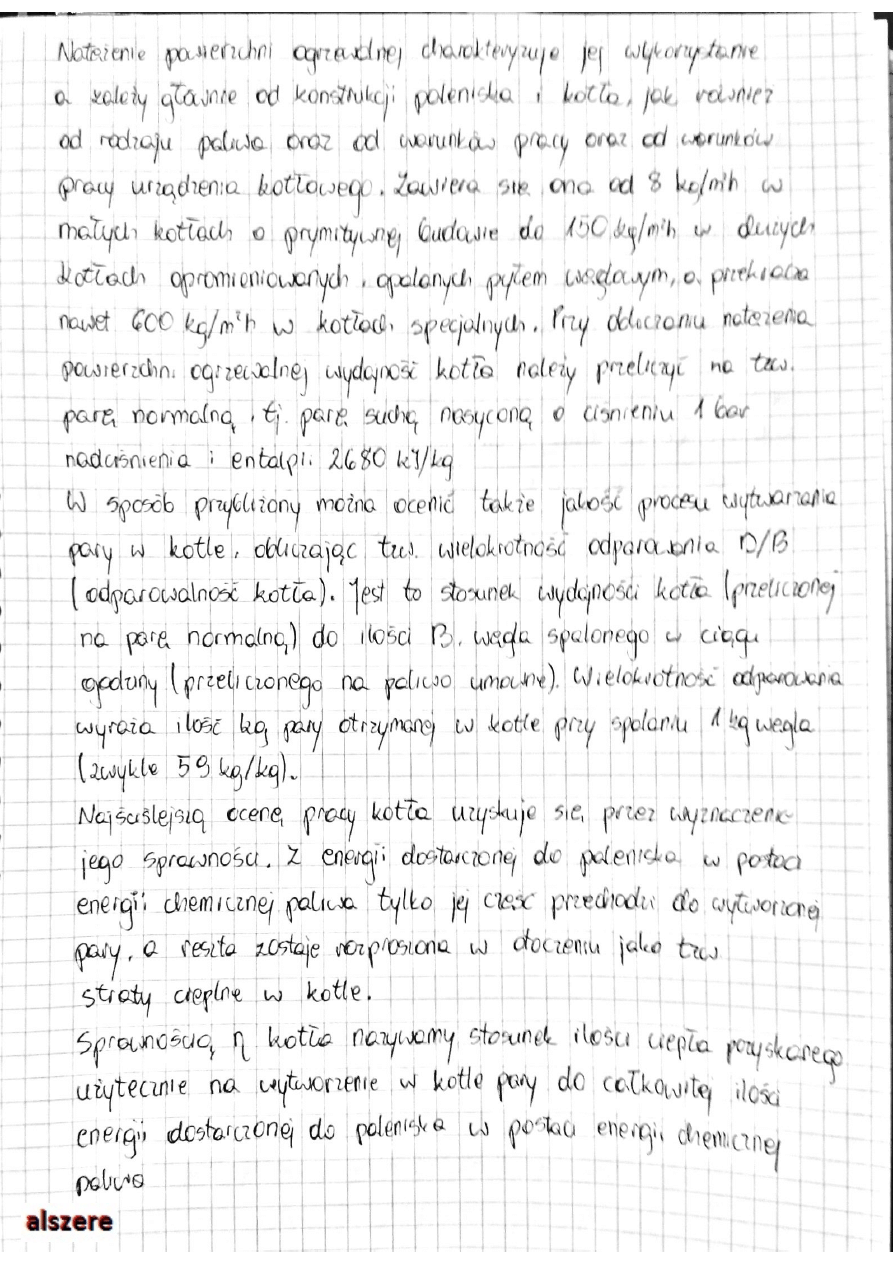 Natężenie powierzchni ogrzewalnej charakteryzuje jej wykorzystanie
a zależy głównie od konstrukcji paleniska i kotła, jak również
od rodzaju paliwa oraz od warunków pracy oraz od warunków
pracy urządzenia kotłowego. Zawiera się ono od 8 kg/m²h w
małych kotłach o prymitywnej budowie do 150 kg/m²h w dużych
kotłach opromieniowanych, opalanych pyłem węglowym, a przekracza
nawet 600 kg/m²h w kotłach specjalnych. Przy obliczaniu natężenia
powierzchni ogrzewalnej wydajność kotła należy przeliczyć na tzw.
parę normalną, tj. parę suchą nasyconą o ciśnieniu 1 bar
nadciśnienia i entalpii 2680 kJ/kg
W sposób przybliżony można ocenić także jakość procesu wytwarzania
pary w kotle, obliczając tzw. wielokrotność odparowania D/B
(odparowalność kotła). Jest to stosunek wydajności kotła (przeliczonej
na parę normalną) do ilości B, węgla spalonego w ciągu
godziny (przeliczonego na paliwo umowne). Wielokrotność odparowania
wyraża ilość kg pary otrzymanej w kotle przy spalaniu 1 kg węgla
(zwykle 59 kg/kg).
Najściślejszą ocenę pracy kotła uzyskuje się przez wyznaczenie
jego sprawności. Z energii dostarczonej do paleniska w postaci
energii chemicznej paliwa tylko jej część przechodzi do wytworzonej
pary, a reszta zostaje rozproszona w otoczeniu jako tzw
straty cieplne w kotle.
Sprawnością η kotła nazywamy stosunek ilości ciepła pozyskanego
użytecznie na wytworzenie w kotle pary do całkowitej ilości
energii dostarczonej do paleniska w postaci energii chemicznej
paliwa
alszere